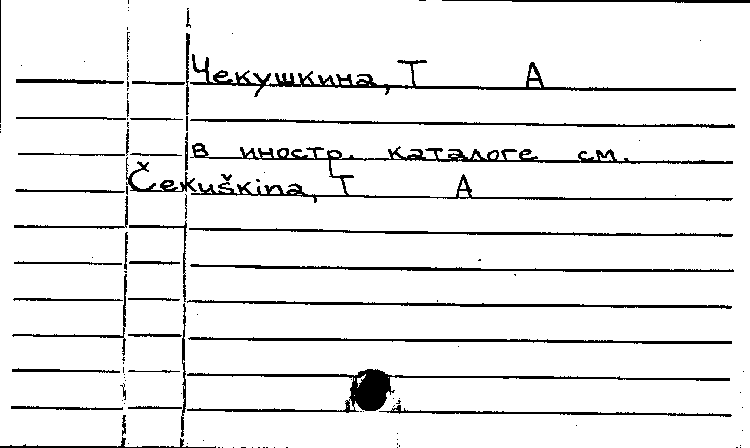 Чекушкина, Т А
в иностр. каталоге см.
Čekuškina, T A